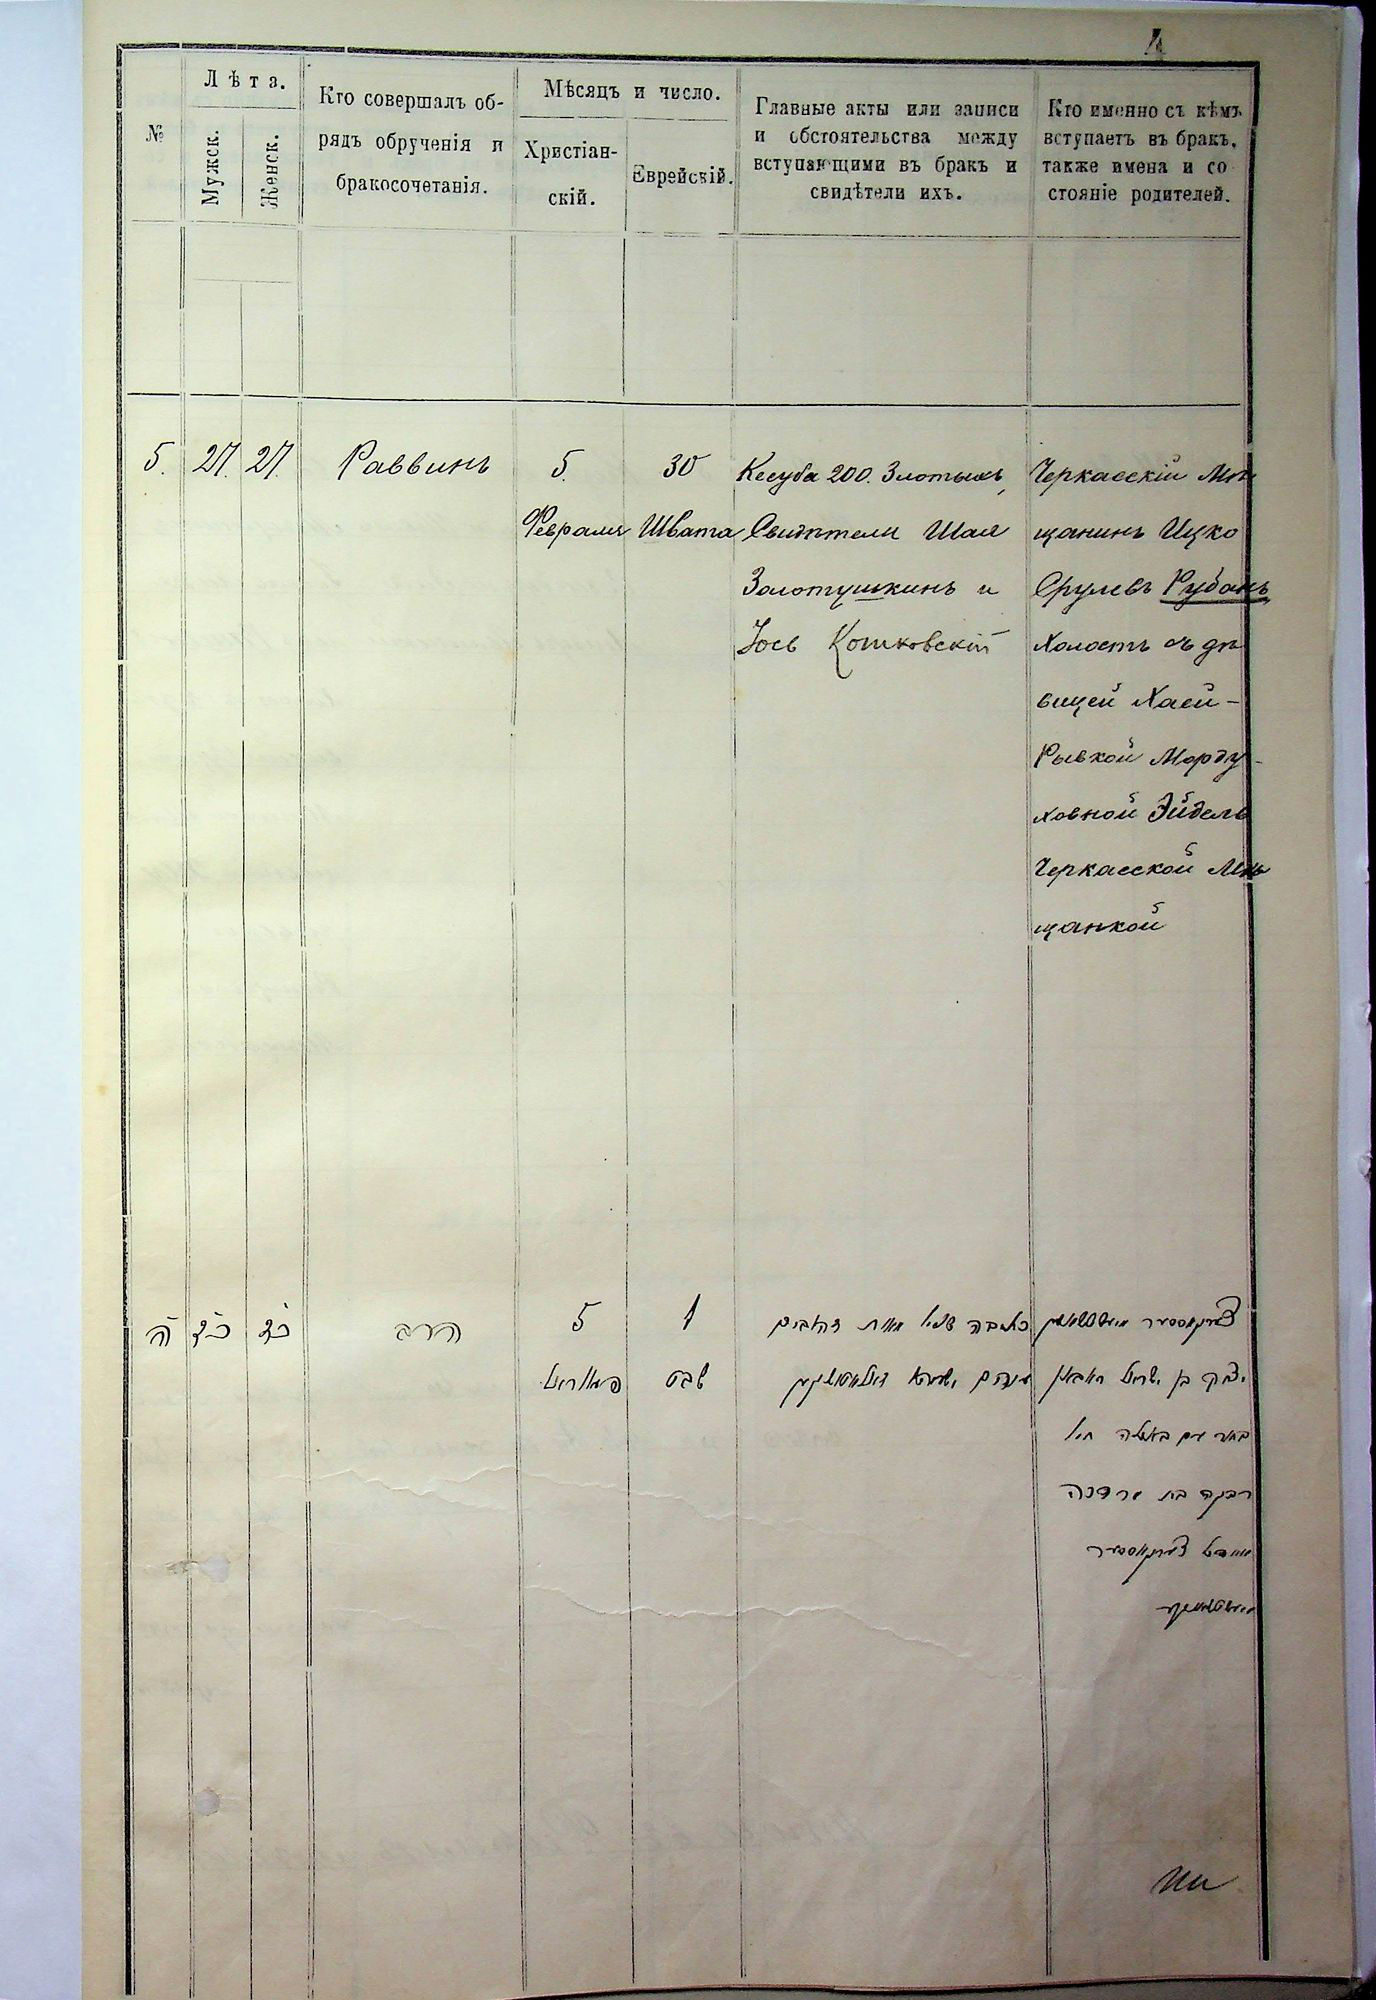 4
№
Лѣта.
Мужск.
Женск.
Кто совершалъ об-
рядъ обрученія и
бракосочетанія.
Мѣсяцъ и число.
Христіан-
скій.
Еврейскій.
Главные акты или записи
и обстоятельства между
вступающими въ бракъ и
свидѣтели ихъ.
Кто именно съ кѣмъ
вступаетъ въ бракъ,
также имена и со
стояніе родителей.
5.
27.
27.
Раввинъ
5.
Февраля
30
Швата
Кесуба 200. Злотыхъ,
Свидѣтели Шая
Золотушкинъ и
Іось Кошковскій
Черкасскій Мѣ
щанинъ Ицко
Срулевъ Рубанъ
Холостъ съ дѣ
вицей Хаей-
Рывкой Морду-
ховной Эйдель
Черкасской Мѣ
щанкой
ה
הרב
5
פעווראל
שבט
כתובה מאת זהובים
יצחק בן ישראל
בחור עם בתולה חיה
רבקה בת מרדכה